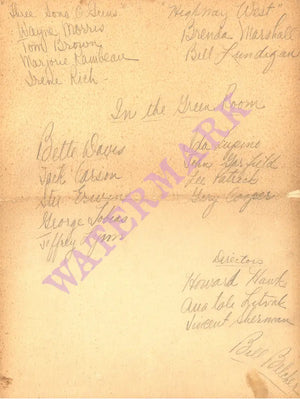 Three Sons O Guns
Wayne Morris
Tom Brown
Marjorie Rambeau
Irene Rich
"Highway West"
Brenda Marshall
Bill Lundigan
In the Green Room
Bette Davis
Jack Carson
Stu Erwin
George Tobias
Jeffrey Lynn
Ida Lupino
John Garfield
Lee Patrick
Gary Cooper
Directors
Howard Hawks
Anatole Litvak
Vincent Sherman
Bill
WATERMARK